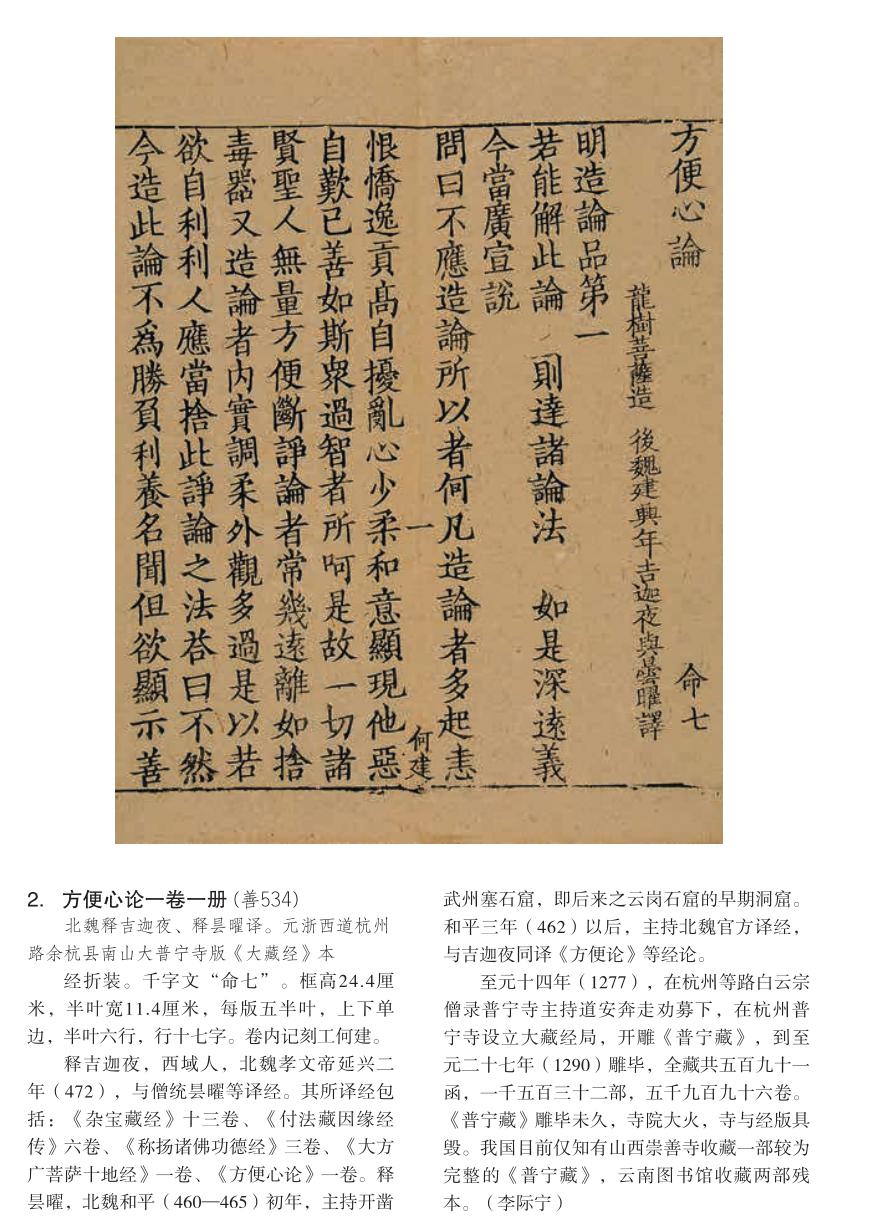 方便心論　命七
龍樹菩薩造　後魏建興年吉迦夜與曇曜譯
明造論品第一
若能解此論　則達諸論法　如是深遠義
今當廣宣說
問曰不應造論所以者何凡造論者多起恚
一　何建
恨憍逸貢高自擾亂心少柔和意顯現他惡
自歎已善如斯衆過智者所呵是故一切諸
賢聖人無量方便斷諍論者常幾遠離如捨
毒器又造論者内實調柔外觀多過是以若
欲自利利人應當捨此諍論之法荅曰不然
今造此論不爲勝負利養名聞但欲顯示善
2. 方便心论一卷一册（善534）
北魏释吉迦夜、释昙曜译。元浙西道杭州
路余杭县南山大普宁寺版《大藏经》本
经折装。千字文“命七”。框高24.4厘
米，半叶宽11.4厘米，每版五半叶，上下单
边，半叶六行，行十七字。卷内记刻工何建。
释吉迦夜，西域人，北魏孝文帝延兴二
年（472），与僧统昙曜等译经。其所译经包
括：《杂宝藏经》十三卷、《付法藏因缘经
传》六卷、《称扬诸佛功德经》三卷、《大方
广菩萨十地经》一卷、《方便心论》一卷。释
昙曜，北魏和平（460—465）初年，主持开凿
武州塞石窟，即后来之云岗石窟的早期洞窟。
和平三年（462）以后，主持北魏官方译经，
与吉迦夜同译《方便论》等经论。
至元十四年（1277），在杭州等路白云宗
僧录普宁寺主持道安奔走劝募下，在杭州普
宁寺设立大藏经局，开雕《普宁藏》，到至
元二十七年（1290）雕毕，全藏共五百九十一
函，一千五百三十二部，五千九百九十六卷。
《普宁藏》雕毕未久，寺院大火，寺与经版具
毁。我国目前仅知有山西崇善寺收藏一部较为
完整的《普宁藏》，云南图书馆收藏两部残
本。（李际宁）